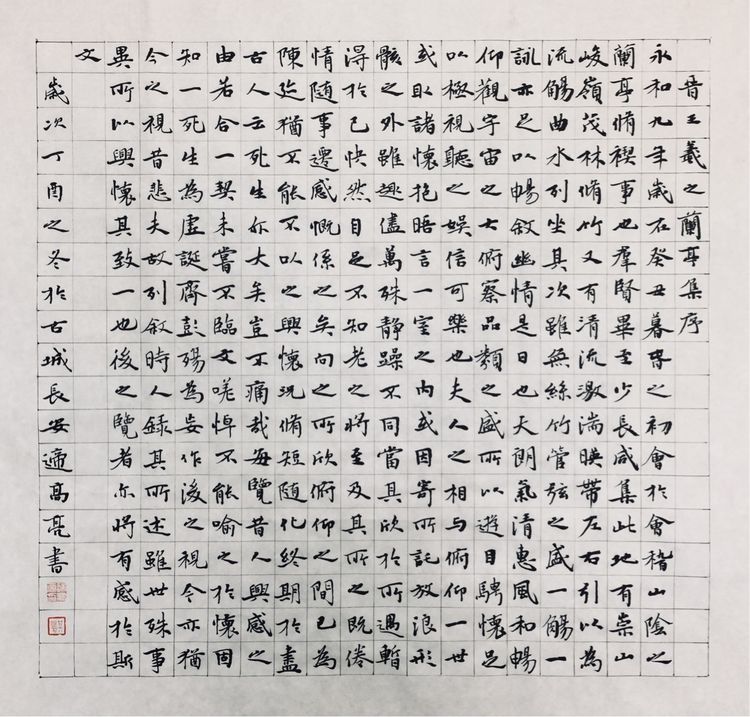 晉王羲之蘭亭集序
永和九年歲在癸丑暮春之初會於會稽山陰之
蘭亭脩禊事也羣賢畢至少長咸集此地有崇山
峻嶺茂林脩竹又有清流激湍映帶左右引以為
流觴曲水列坐其次雖無絲竹管弦之盛一觴一
詠亦足以暢敘幽情是日也天朗氣清惠風和暢
仰觀宇宙之大俯察品類之盛所以遊目騁懷足
以極視聽之娛信可樂也夫人之相与俯仰一世
或取諸懷抱晤言一室之內或因寄所託放浪形
骸之外雖趣儘萬殊静躁不同當其欣於所遇暫
得於己快然自足不知老之將至及其所之既倦
情隨事遷感慨係之矣向之所欣俯仰之間已為
陳迹猶不能不以之興懷況脩短隨化終期於盡
古人云死生亦大矣豈不痛哉每覽昔人興感之
由若合一契未嘗不臨文嗟悼不能喻之於懷固
知一死生為虛誕齊彭殤為妄作後之視今亦猶
今之視昔悲夫故列敘時人錄其所述雖世殊事
異所以興懷其致一也後之覽者亦將有感於斯
文
歲次丁酉之冬於古城長安適高亮書